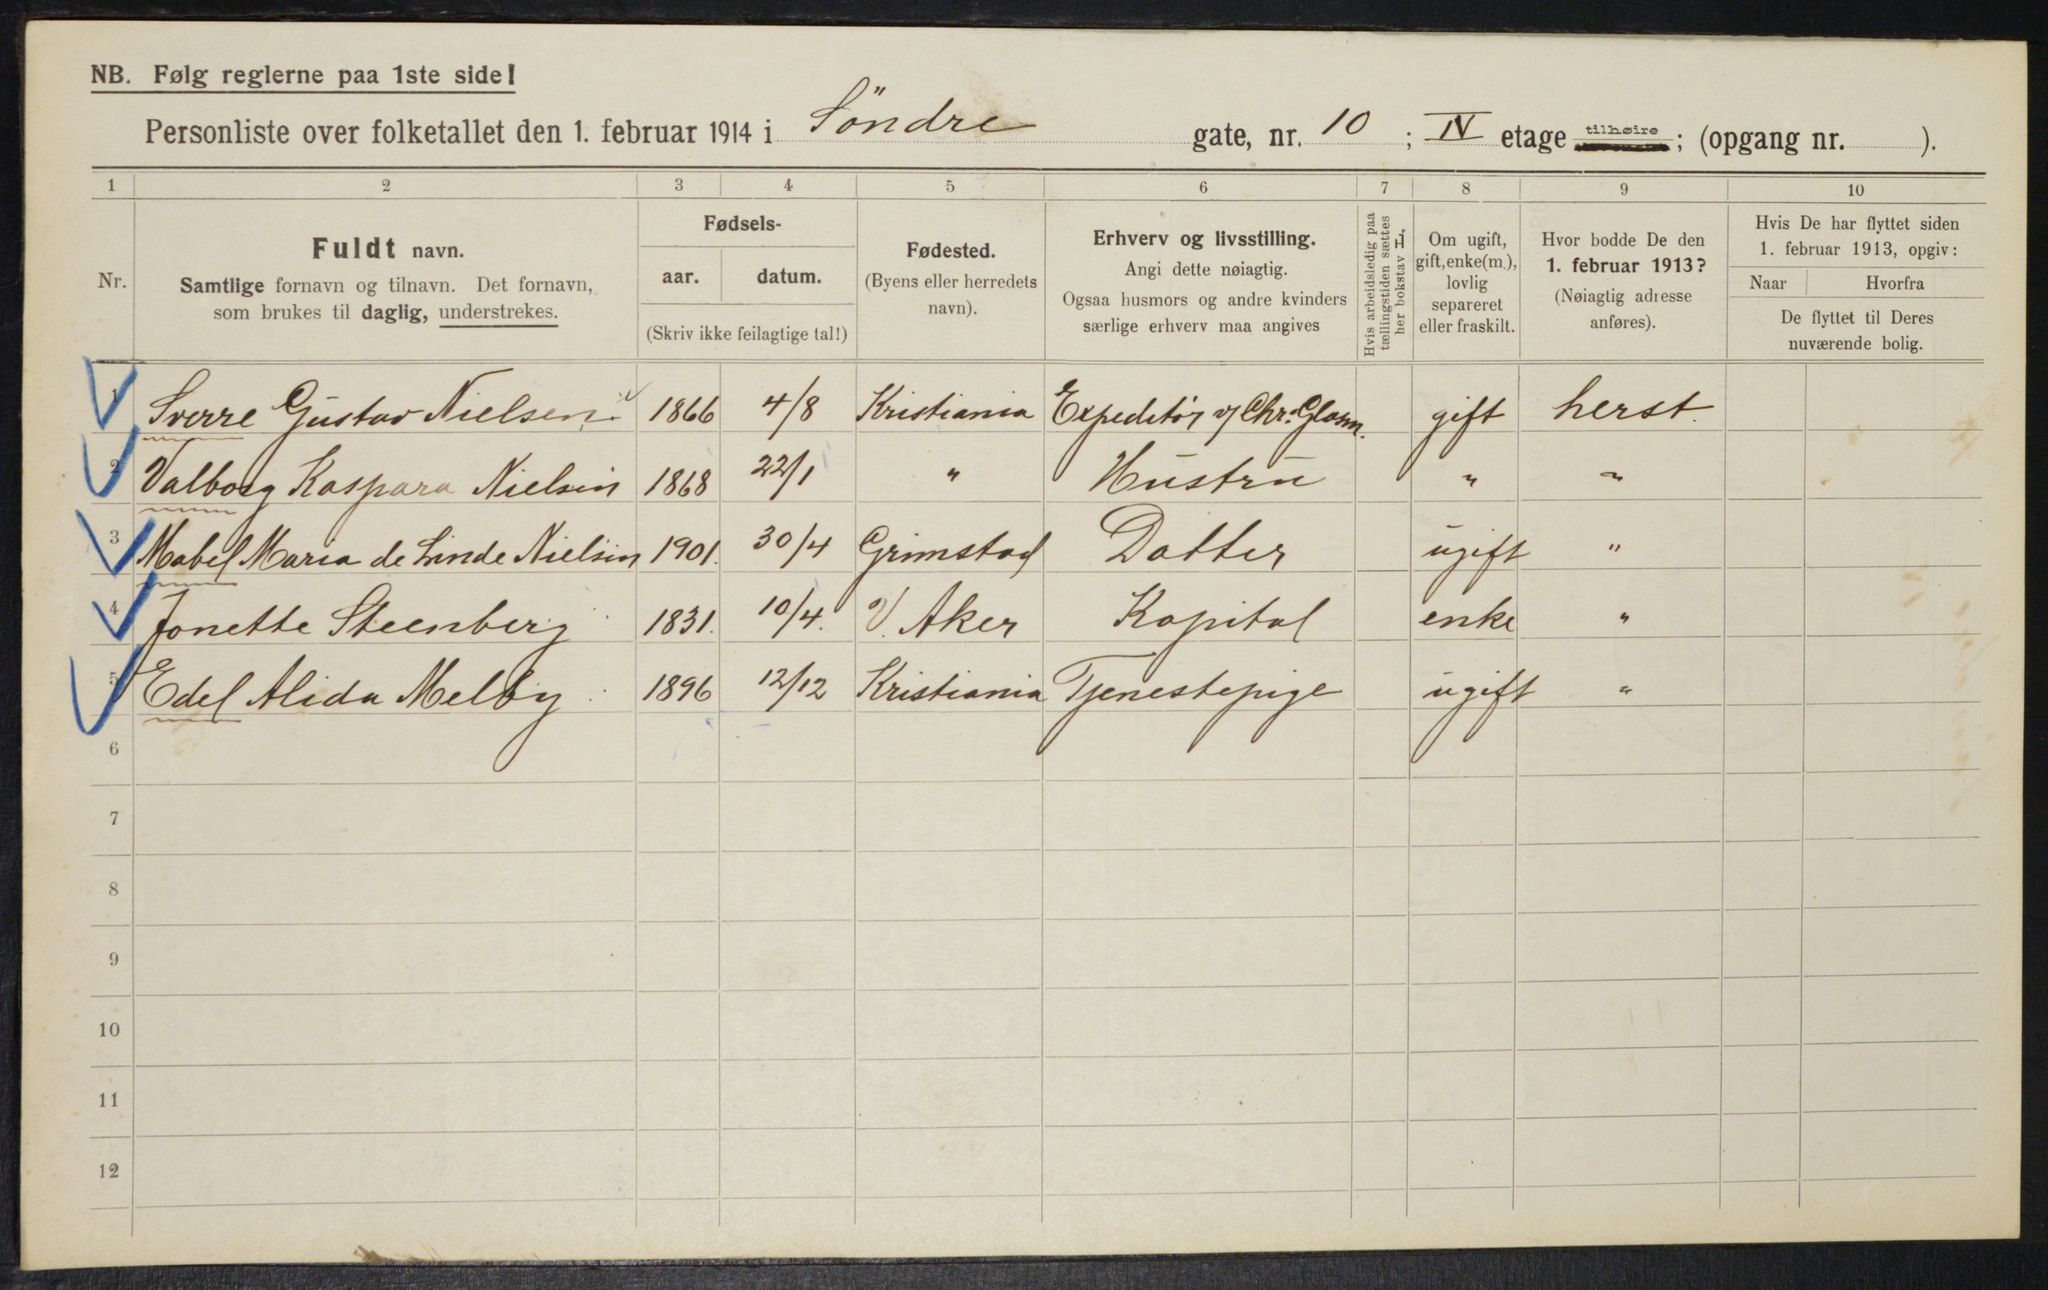 NB. Følg reglerne paa 1ste side!
Personliste over folketallet den 1. februar 1914 i Söndre gate, nr. 10 ; IV etage tilhøire ; (opgang nr. ).
1 2 3 4 5 6 7 8 9 10
Nr.
Fuldt navn.
Samtlige fornavn og tilnavn. Det fornavn,
som brukes til daglig, understrekes.
Fødsels-
aar. datum.
(Skriv ikke feilagtige tal!)
Fødested.
(Byens eller herredets
navn).
Erhverv og livsstilling.
Angi dette nøiagtig.
Ogsaa husmors og andre kvinders
særlige erhverv maa angives
Hvis arbeidsledig paa
tællingstiden sættes
her bokstav H.
Om ugift,
gift, enke(m.),
lovlig
separeret
eller fraskilt.
Hvor bodde De den
1. februar 1913?
(Nøiagtig adresse
anføres).
Hvis De har flyttet siden
1. februar 1913, opgiv:
Naar Hvorfra
De flyttet til Deres
nuværende bolig.
1 Sverre Gustav Nielsen 1866 4/8 Kristiania Expeditör v/ Chr. Glasm. gift herst.
2 Valborg Kaspara Nielsen 1868 22/1 " Hustru " "
3 Mabel Maria de Linde Nielsen 1901. 30/4 Grimstad Datter ugift "
4 Jonette Steenberg 1831. 10/4. V. Aker Kapital enke "
5 Edel Alida Melby 1896 12/12 Kristiania Tjenestepige ugift "
6
7
8
9
10
11
12